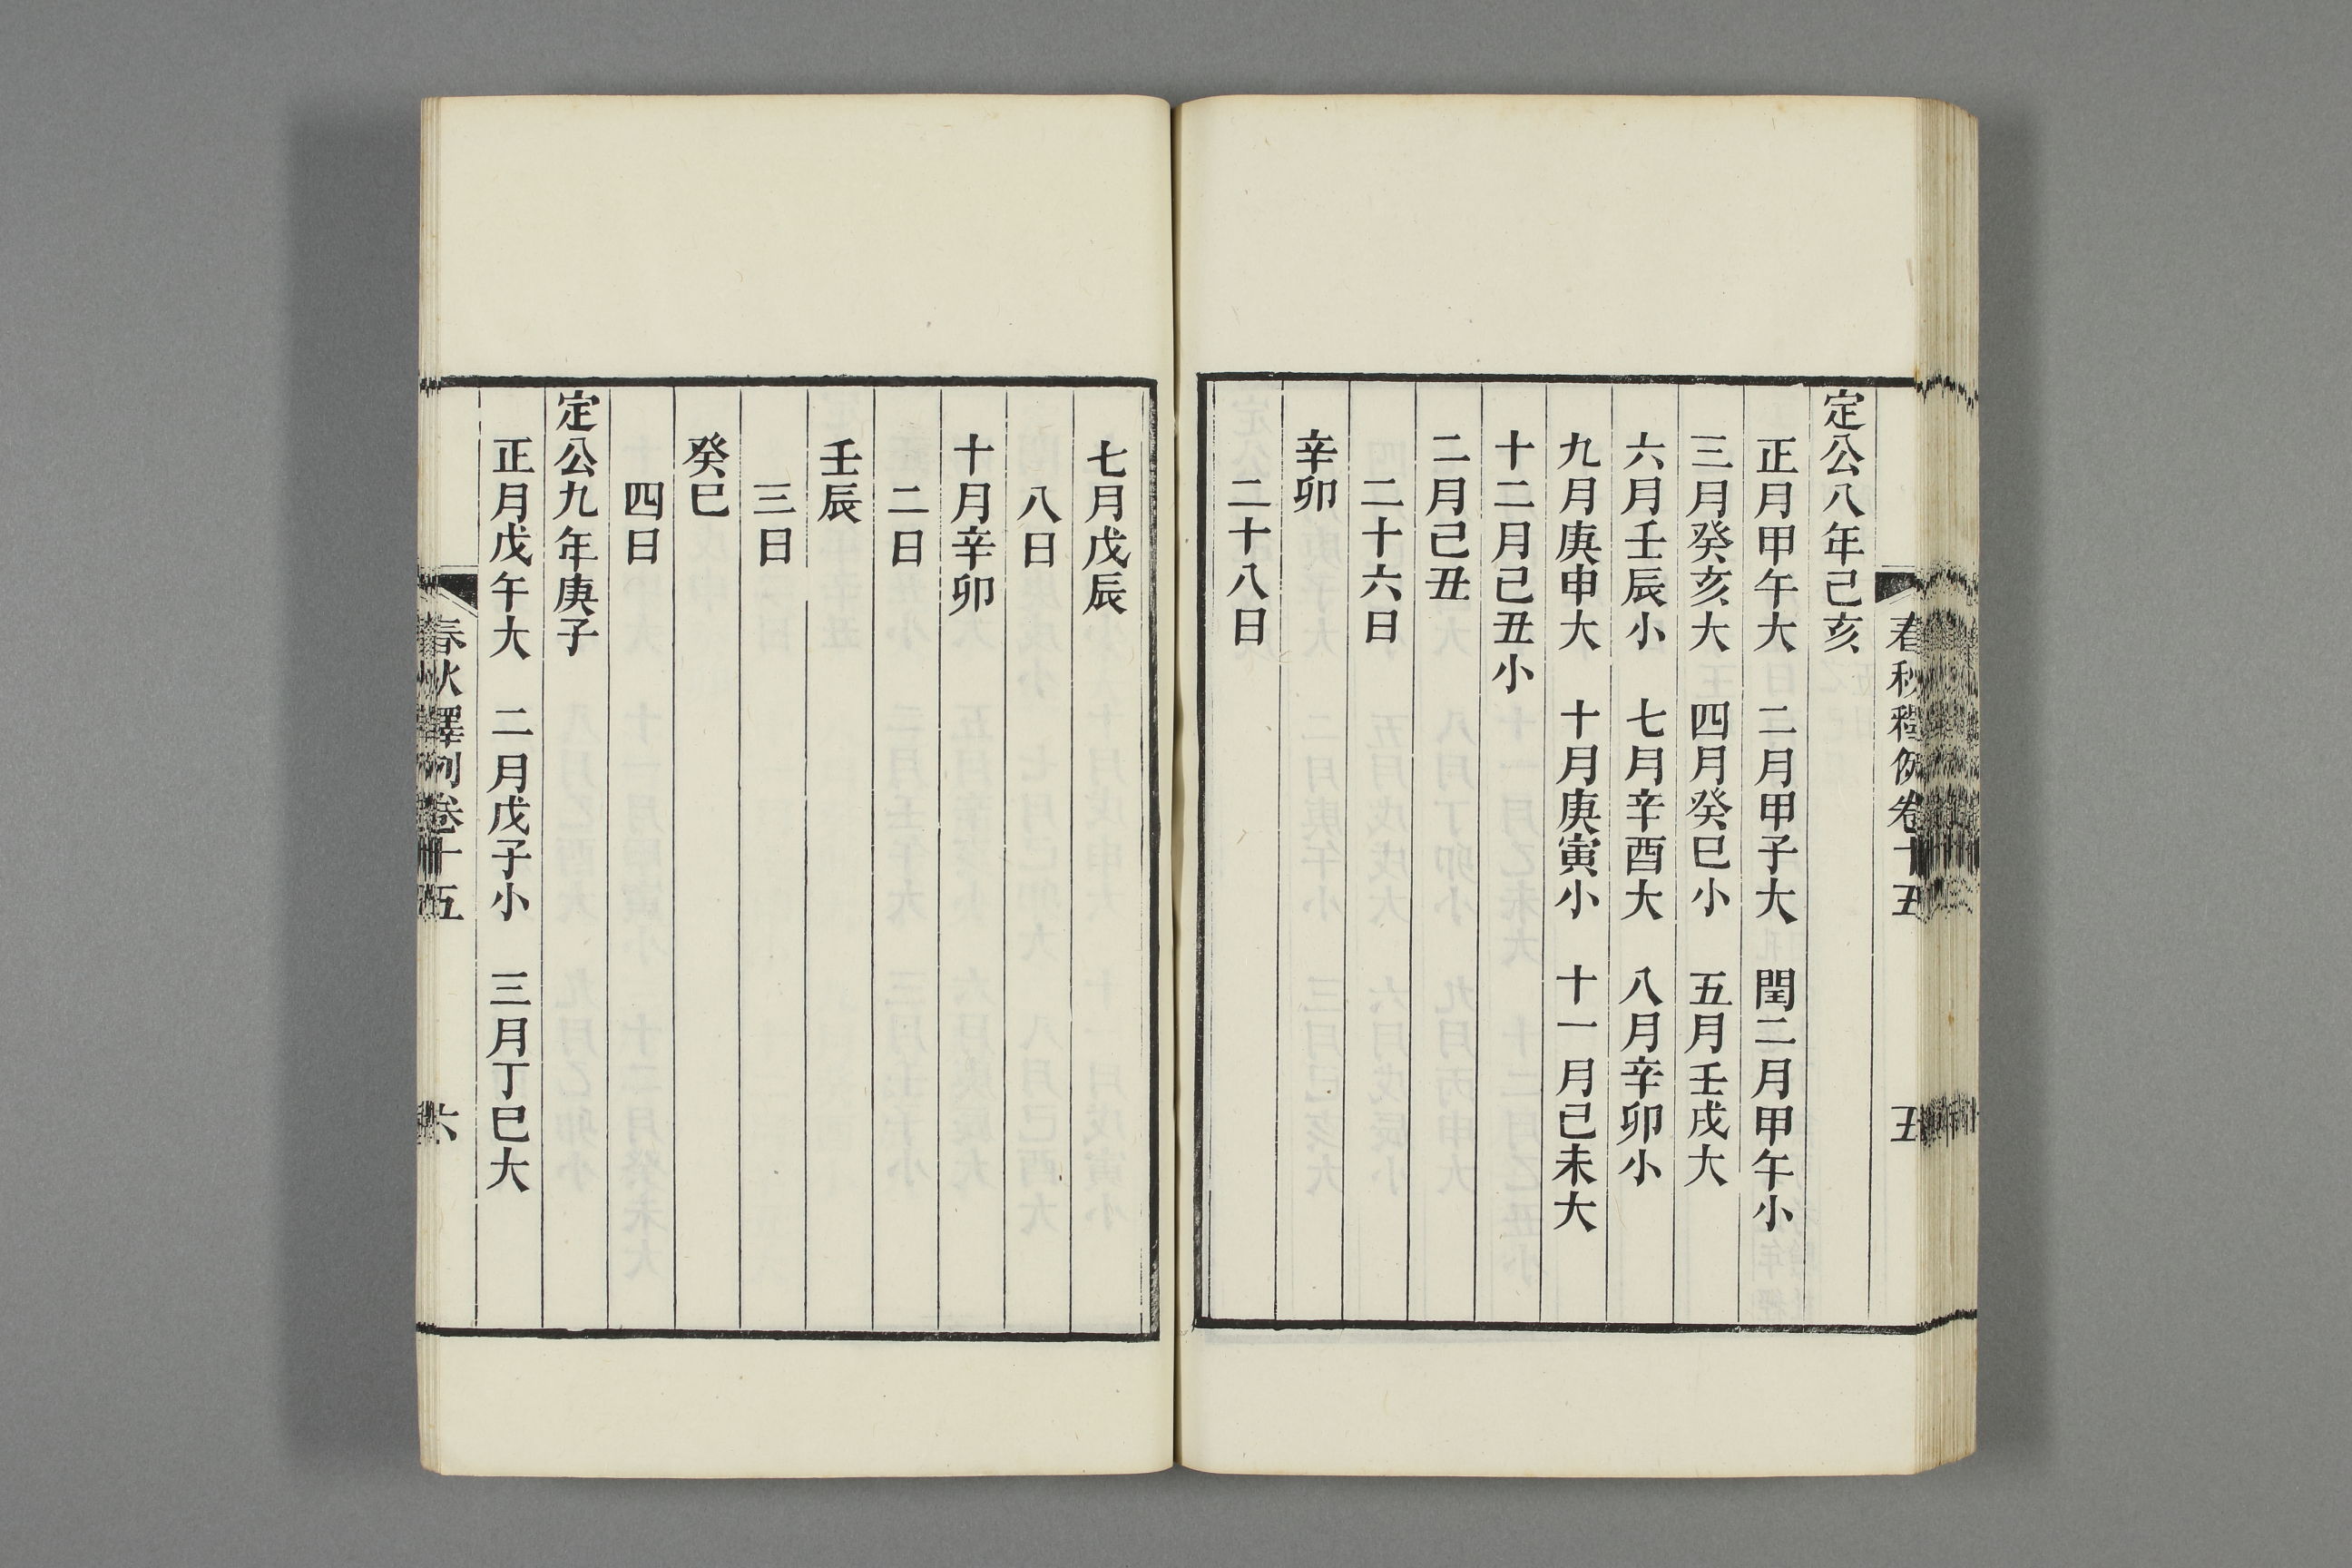 春秋釋例卷十五 五
定公八年己亥
正月甲午大 二月甲子大 閏二月甲午小
三月癸亥大 四月癸巳小 五月壬戌大
六月壬辰小 七月辛酉大 八月辛卯小
九月庚申大 十月庚寅小 十一月己未大
十二月己丑小
二月己丑
二十六日
辛卯
二十八日
七月戊辰
八日
十月辛卯
二日
壬辰
三日
癸巳
四日
定公九年庚子
正月戊午大 二月戊子小 三月丁巳大
春秋釋例卷十五 六